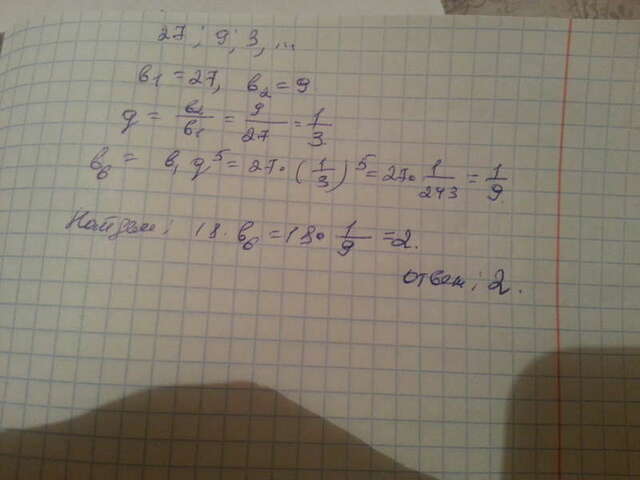 27; 9; 3, ...
b₁ = 27, b₂ = 9
q = b₂/b₁ = 9/27 = 1/3
b₆ = b₁q⁵ = 27·(1/3)⁵ = 27·1/243 = 1/9
: 18·b₆ = 18·1/9 = 2.
Ответ: 2.